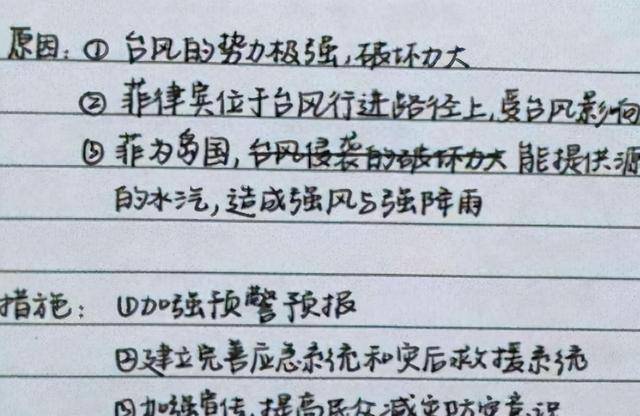 原因：① 台风的势力极强，破坏力大
② 菲律宾位于台风行进路径上，受台风影响
③ 菲为岛国，台风侵袭的破坏力大 能提供源
的水汽，造成强风与强降雨
措施：①加强预警预报
②建立完善应急系统和灾后救援系统
③加强宣传，提高民众减灾防灾意识